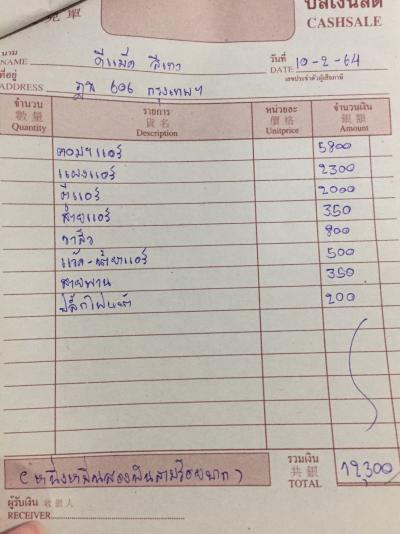 兌單
บิลเงินสด
CASHSALE
นาม
NAME ดีแม็ก สีเทา
วันที่
DATE 10-2-64
ที่อยู่
ADDRESS 606 กรุงเทพฯ
เลขประจำตัวผู้เสียภาษี
จำนวน 數量 Quantity รายการ 貨名 Description หน่วยละ 價格 Unitprice จำนวนเงิน 銀額 Amount
คอมฯแอร์ 5800
แผงแอร์ 2300
ตู้แอร์ 2000
สายแอร์ 350
วาล์ว 800
แว๊ค-น้ำยาแอร์ 500
สายพาน 350
ปลั๊กไฟหน้า 200
(หนึ่งหมื่นสองพันสามร้อยบาท) รวมเงิน 共銀 TOTAL 12,300
ผู้รับเงิน 收銀人
RECEIVER